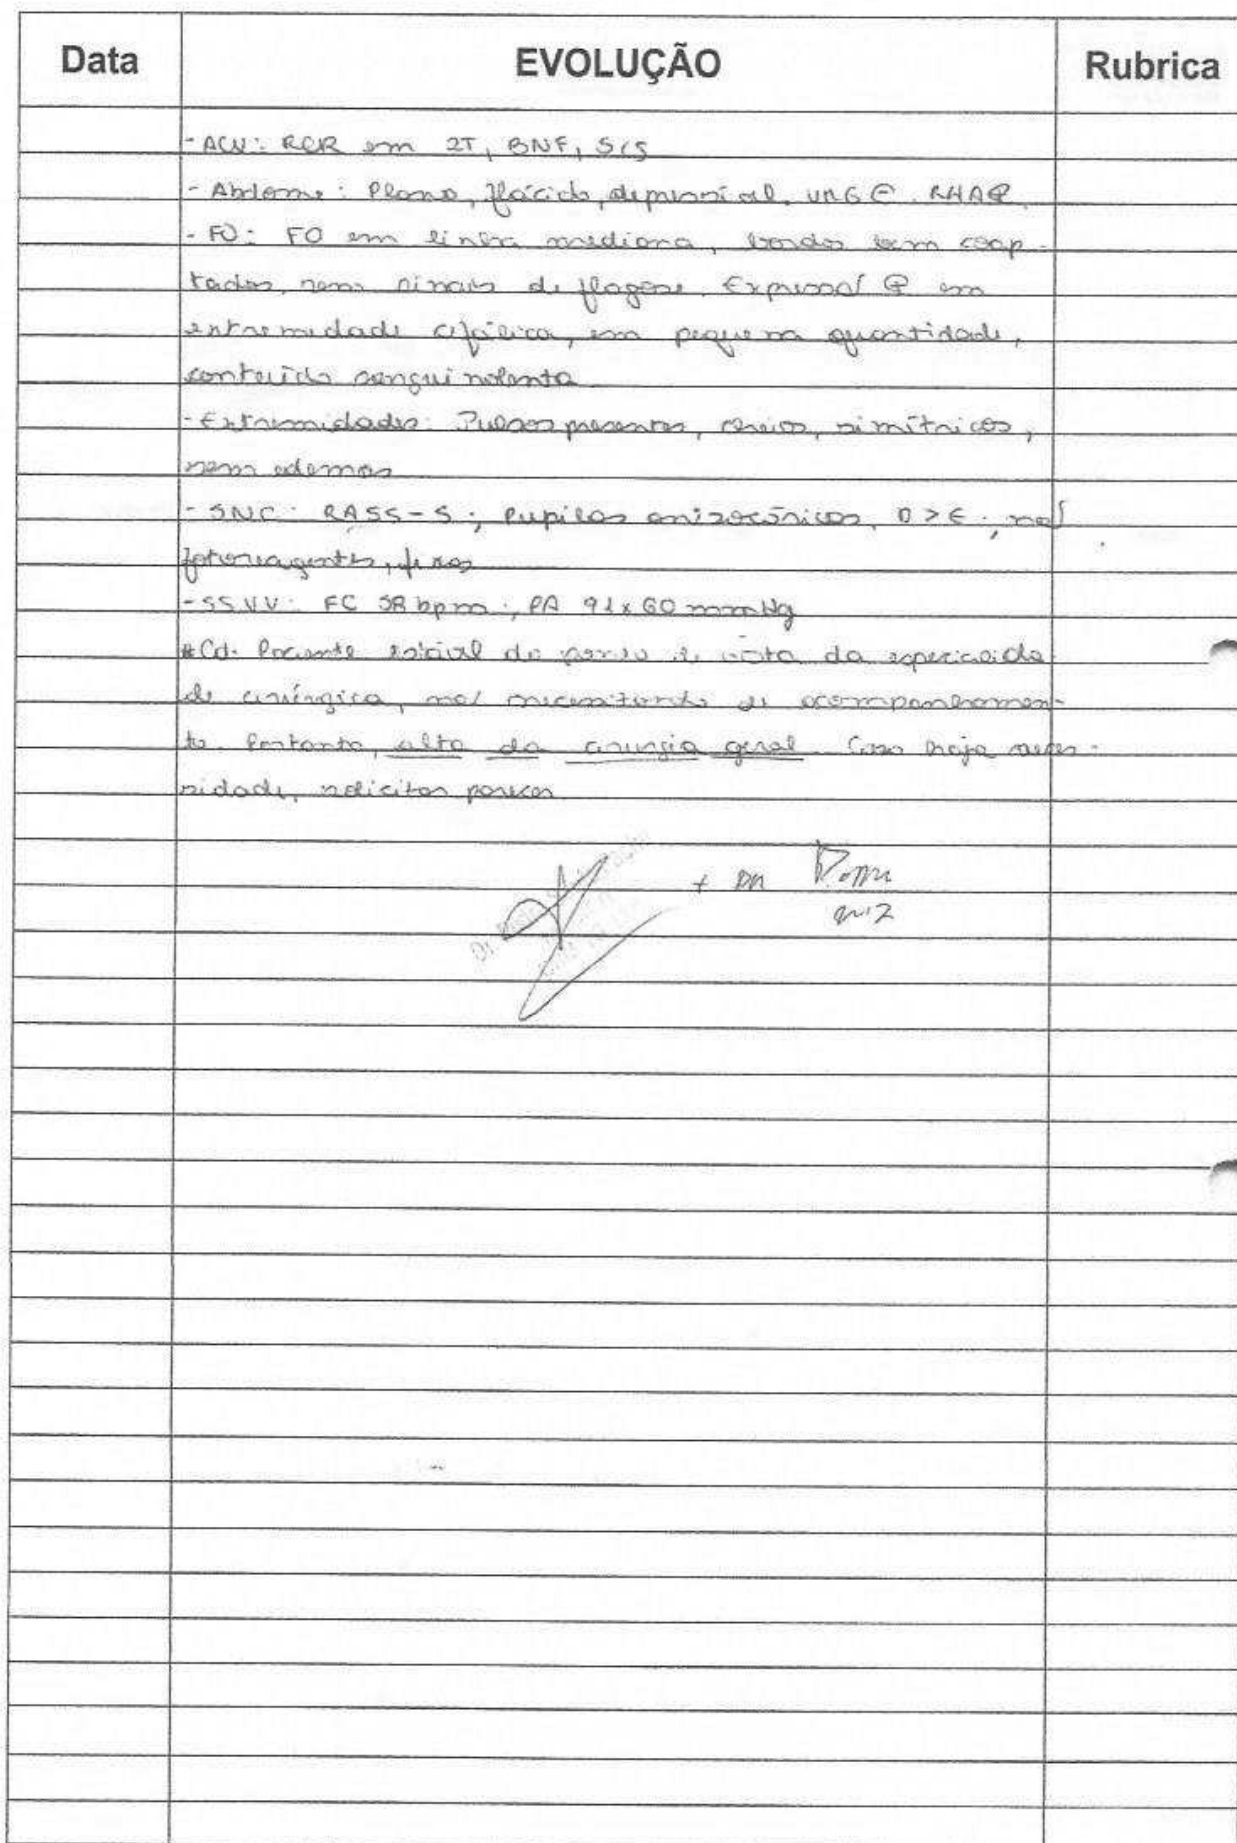 Data EVOLUÇÃO Rubrica
- ACV: RCR em 2T, BNF, S/S
- Abdome: Plano, flácido, depressível, VMG ⊖. RHA⊕.
- FO: FO em linha mediana, bordos bem coap-
tados, sem sinais de flogose. Expressão ⊕ em
extremidade cefálica, em pequena quantidade,
conteúdo sanguinolento
- Extremidades: Pulsos presentes, cheios, simétricos,
sem edemas
- SNC: RASS-5; Pupilas anisocóricas, D>E; não
fotorreagentes, fixas
- SSVV: FC bpm; PA 91x60 mmHg
#Cd: Paciente estável do ponto de vista da especialida
de cirúrgica, não necessitando de acompanhamen-
to. Portanto, alta da cirurgia geral. Caso haja neces-
sidade, solicitar parecer
Dr.
+ DR